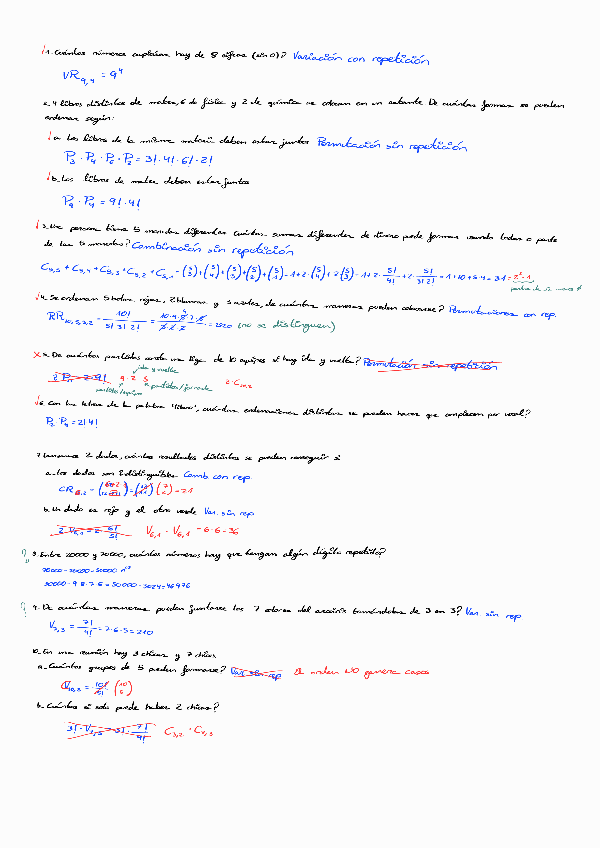 1. Cuántos números capicúas hay de 8 cifras (sin 0)? Variación con repetición
VR9,4 = 9⁴
2. 4 libros distintos de mates, 6 de física y 2 de química se colocan en un estante. De cuántas formas se pueden
ordenar según:
a. Los libros de la misma materia deben estar juntos Permutación sin repetición
P3 · P4 · P6 · P2 = 3! · 4! · 6! · 2!
b. Los libros de mates deben estar juntos
P9 · P4 = 9! · 4!
3. Una persona tiene 5 monedas diferentes cuántas sumas diferentes de dinero puede formar usando todas o parte
de las 5 monedas? Combinación sin repetición
C5,5 + C5,4 + C5,3 + C5,2 + C5,1
4. Se ordenan 5 bolas rojas, 2 blancas y 3 azules, de cuántas maneras pueden colocarse? Permutaciones con rep.
= 2520 (no se distinguen)
5. De cuántos partidos consta una liga de 10 equipos si hay ida y vuelta? Permutación sin repetición
ida y vuelta
9 · 2 · 5
partidos/jornada
2·C10,2
6. Con las letras de la palabra 'libro', cuántas ordenaciones distintas se pueden hacer que empiecen por vocal?
P2 P4 = 2! 4!
7. Lanzamos 2 dados, cuántos resultados distintos se pueden conseguir si
a. Los dados son indistinguibles Comb con rep
= 21
b. Un dado es rojo y el otro verde Var. sin rep
V6,1 · V6,1 = 6·6 = 36
8. Entre 20000 y 70000, cuántos números hay que tengan algún dígito repetido?
70000 - 20000 = 50000 nº
50000 - 9·8·7·6 = 50000 - 3024 = 46976
9. De cuántas maneras pueden juntarse los 7 colores del arcoiris tomándolos de 3 en 3? Var. sin rep
V7,3 = 7!/4! = 7·6·5 = 210
10. En una reunión hay 3 chicas y 7 chicos
a. Cuántos grupos de 5 pueden formarse? Var. sin rep El orden NO genera casos
b. Cuántos si solo puede haber 2 chicas?
C3,2 · C7,3